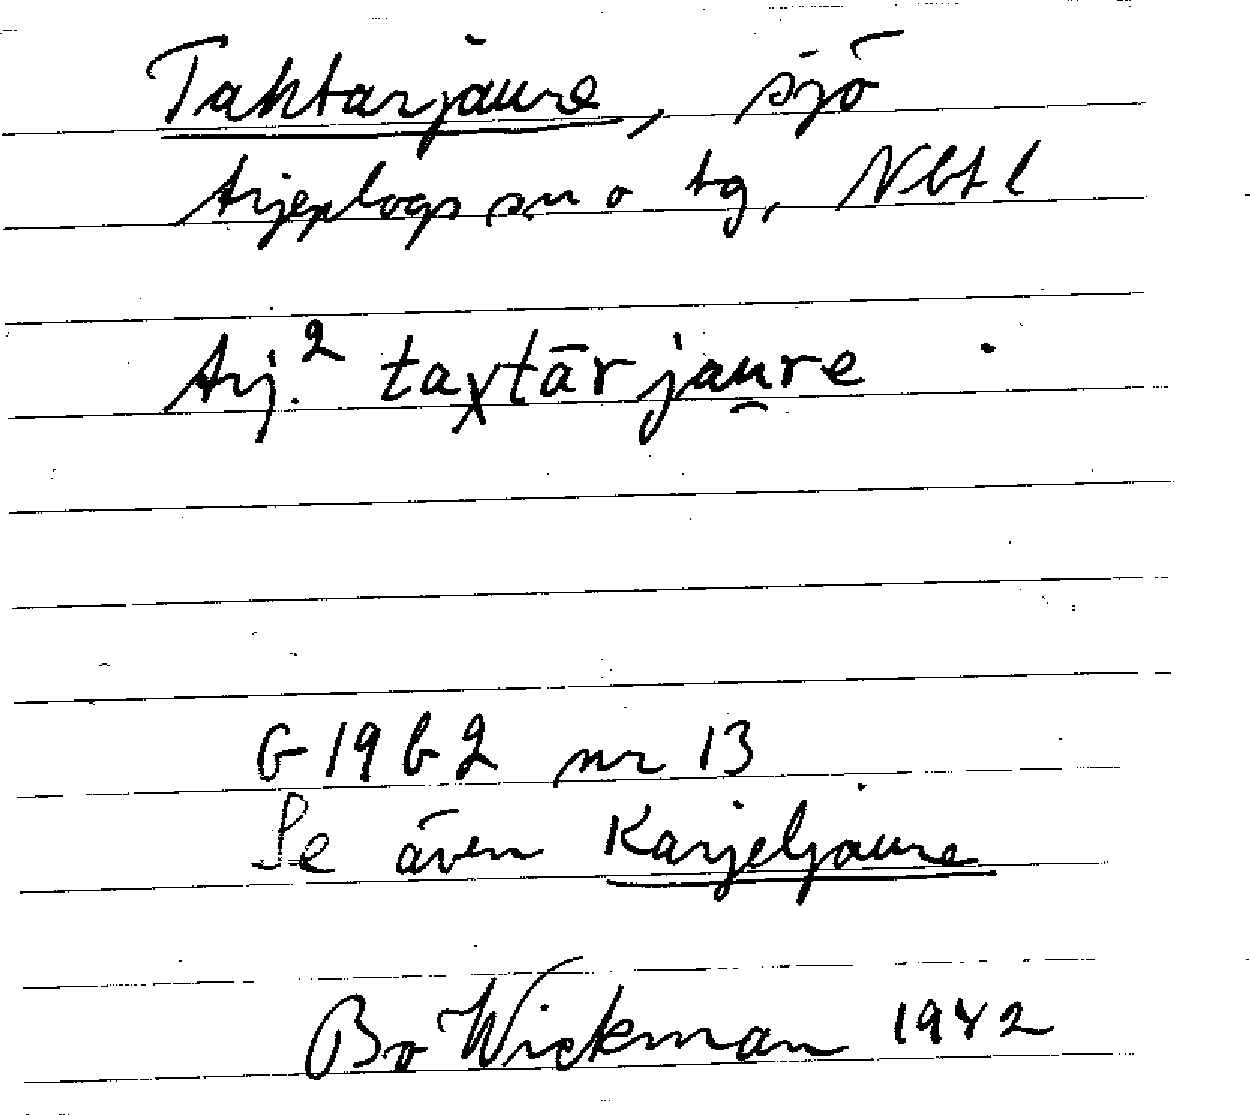 Tahtarjaure, sjö
Arjeplogs sn o tg, Nbt l
Arj.² taχtārjau̯re
G 19 b 2 nr 13
Se även Karjeljaure
Bo Wickman 1942